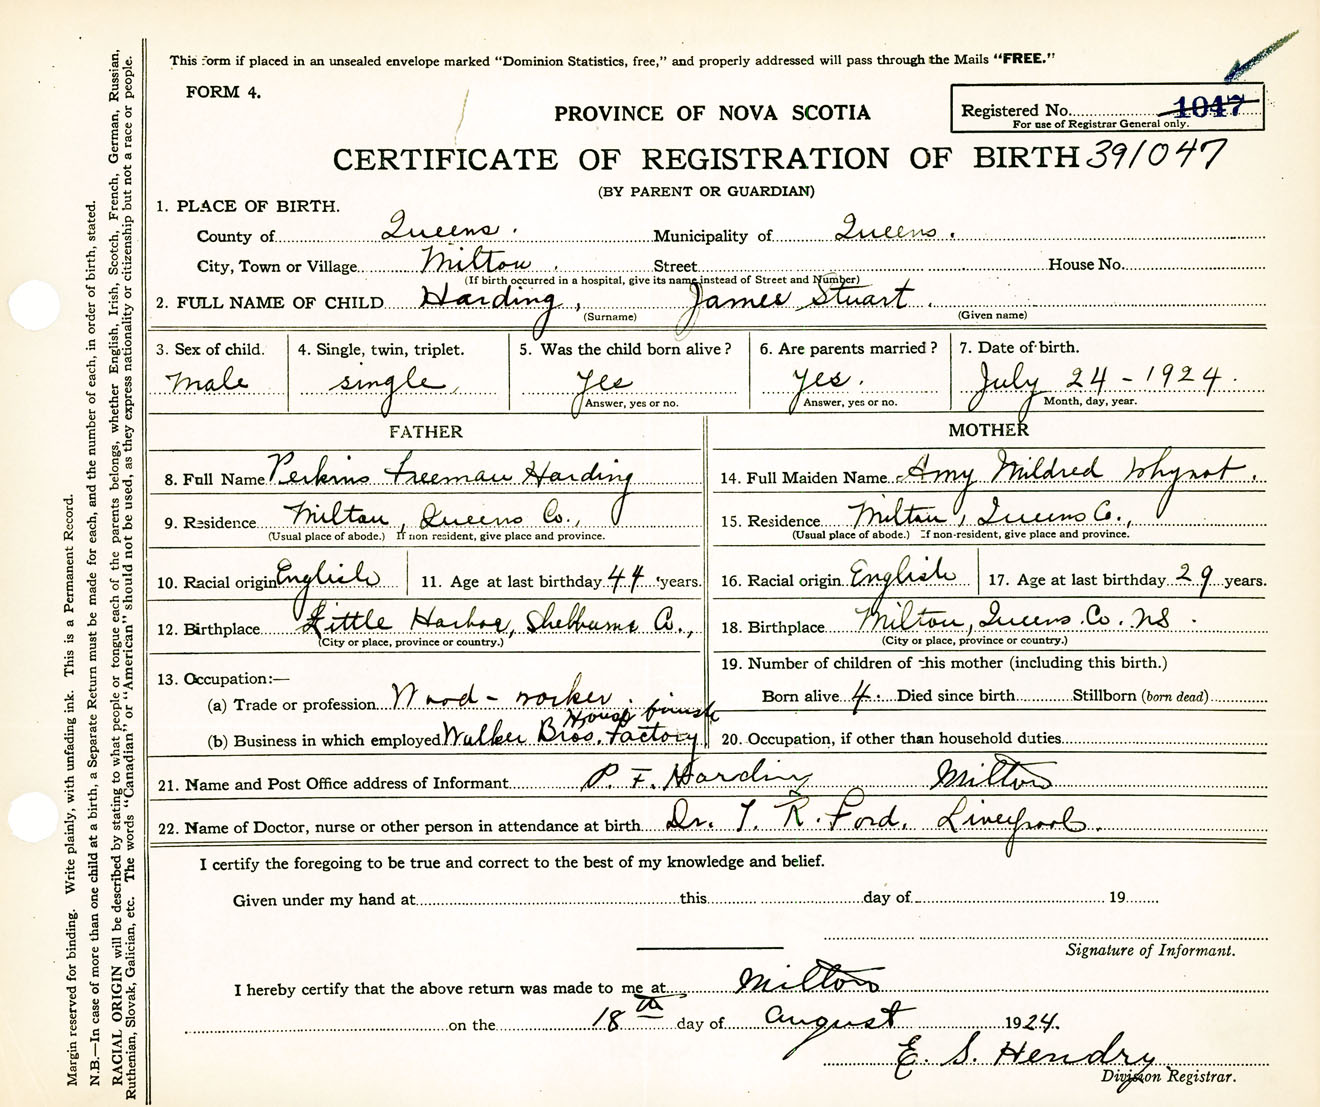 This form if placed in an unsealed envelope marked "Dominion Statistics, free," and properly addressed will pass through the Mails "FREE."
FORM 4.
PROVINCE OF NOVA SCOTIA
Registered No. 1047
For use of Registrar General only.
CERTIFICATE OF REGISTRATION OF BIRTH 391047
(BY PARENT OR GUARDIAN)
1. PLACE OF BIRTH.
County of Queens. Municipality of Queens.
City, Town or Village Milton. Street House No.
(If birth occurred in a hospital, give its name instead of Street and Number)
2. FULL NAME OF CHILD Harding, James Stuart.
(Surname) (Given name)
3. Sex of child. 4. Single, twin, triplet. 5. Was the child born alive? 6. Are parents married? 7. Date of birth.
Male single, Yes Yes. July 24-1924.
Answer, yes or no. Answer, yes or no. Month, day, year.
FATHER MOTHER
8. Full Name Perkins Freeman Harding 14. Full Maiden Name Amy Mildred Whynot.
9. Residence Milton, Queens Co., 15. Residence Milton, Queens Co.,
(Usual place of abode.) If non resident, give place and province. (Usual place of abode.) If non-resident, give place and province.
10. Racial origin English 11. Age at last birthday 44 years. 16. Racial origin English 17. Age at last birthday 29 years.
12. Birthplace Little Harbor, Shelburne Co., 18. Birthplace Milton, Queens Co. NS.
(City or place, province or country.) (City or place, province or country.)
19. Number of children of this mother (including this birth.)
13. Occupation:—
(a) Trade or profession Wood-worker. Born alive 4. Died since birth Stillborn (born dead)
House finish
(b) Business in which employed Walker Bros. Factory 20. Occupation, if other than household duties
21. Name and Post Office address of Informant P. F. Harding Milton
22. Name of Doctor, nurse or other person in attendance at birth Dr. T. R. Ford, Liverpool.
I certify the foregoing to be true and correct to the best of my knowledge and belief.
Given under my hand at this day of 19
Signature of Informant.
I hereby certify that the above return was made to me at Milton
on the 18th day of August 1924.
E. S. Hendry
Division Registrar.
Margin reserved for binding. Write plainly, with unfading ink. This is a Permanent Record.
N.B.—In case of more than one child at a birth, a Separate Return must be made for each, and the number of each, in order of birth, stated.
RACIAL ORIGIN will be described by stating to what people or tongue each of the parents belongs, whether English, Irish, Scotch, French, German, Russian,
Ruthenian, Slovak, Galician, etc. The words "Canadian" or "American" should not be used, as they express nationality or citizenship but not a race or people.